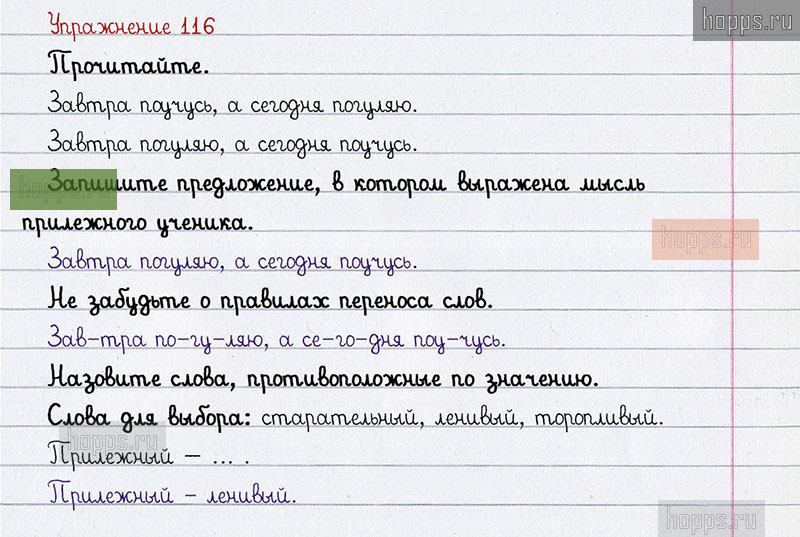 Упражнение 116
hopps.ru
Прочитайте.
Завтра поучусь, а сегодня погуляю.
Завтра погуляю, а сегодня поучусь.
hopps.ru
Запишите предложение, в котором выражена мысль
прилежного ученика.
hopps.ru
Завтра погуляю, а сегодня поучусь.
Не забудьте о правилах переноса слов.
Зав-тра по-гу-ляю, а се-го-дня поу-чусь.
Назовите слова, противоположные по значению.
Слова для выбора: старательный, ленивый, торопливый.
hopps.ru
Прилежный – ... .
Прилежный – ленивый.
hopps.ru